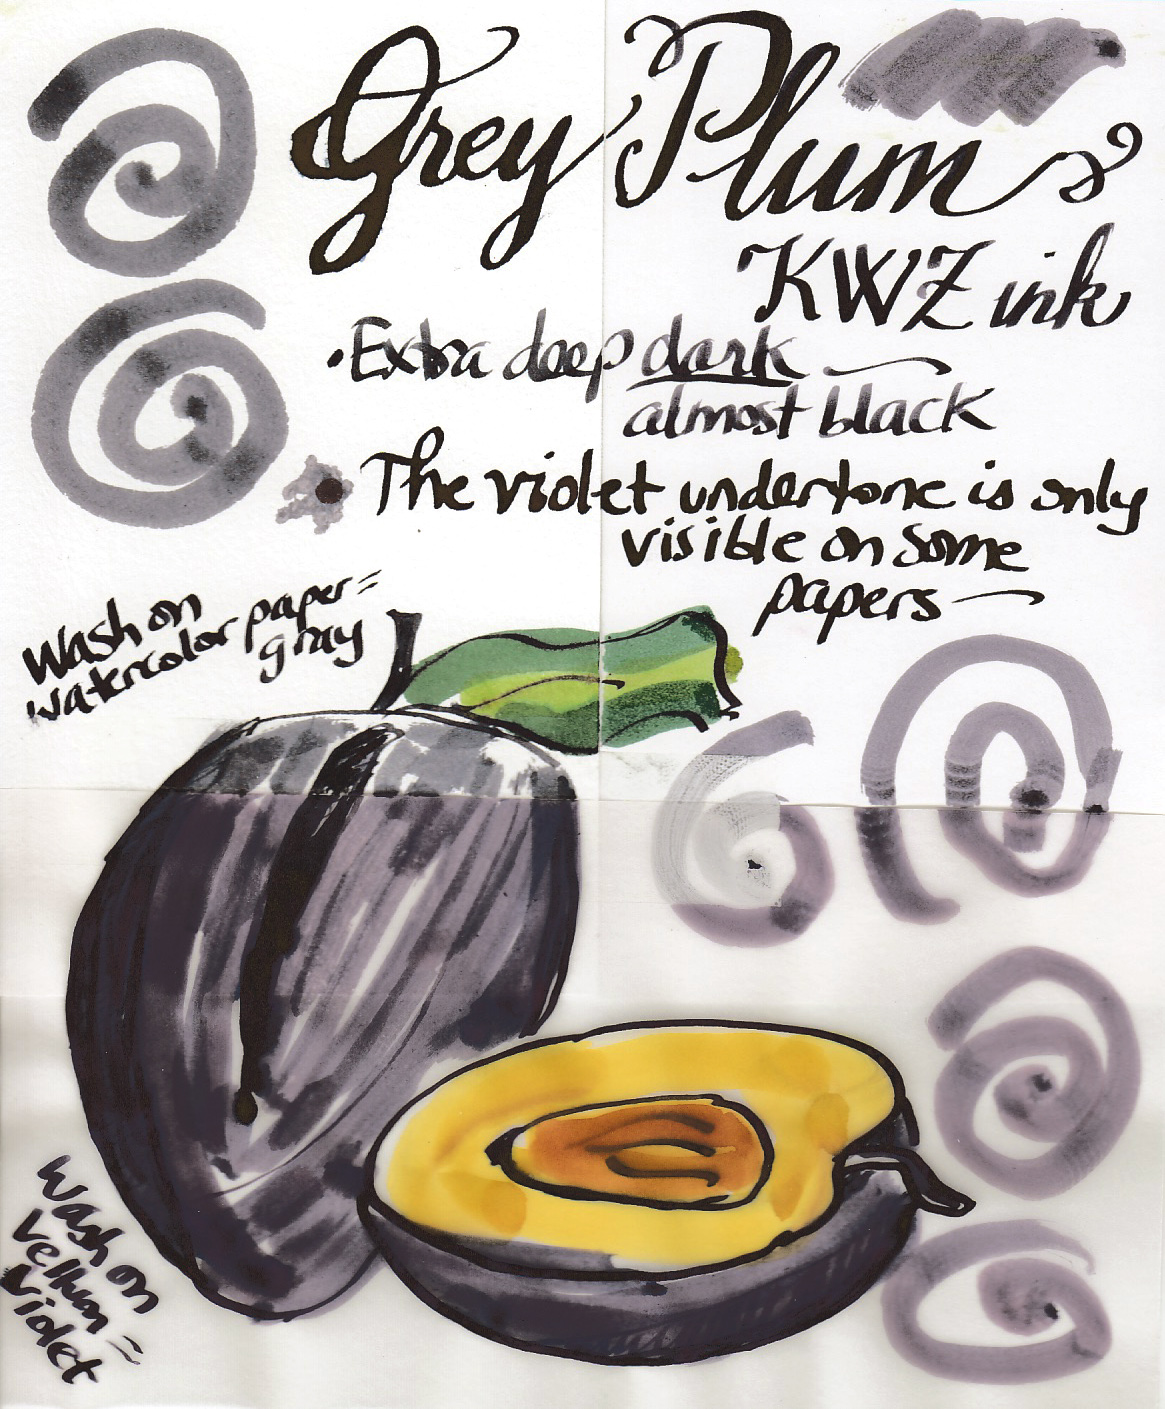 Grey Plum
KWZ ink
• Extra deep dark —
almost black
The violet undertone is only
visible on some
papers —
Wash on
watercolor paper =
gray
Wash on
vellum =
violet